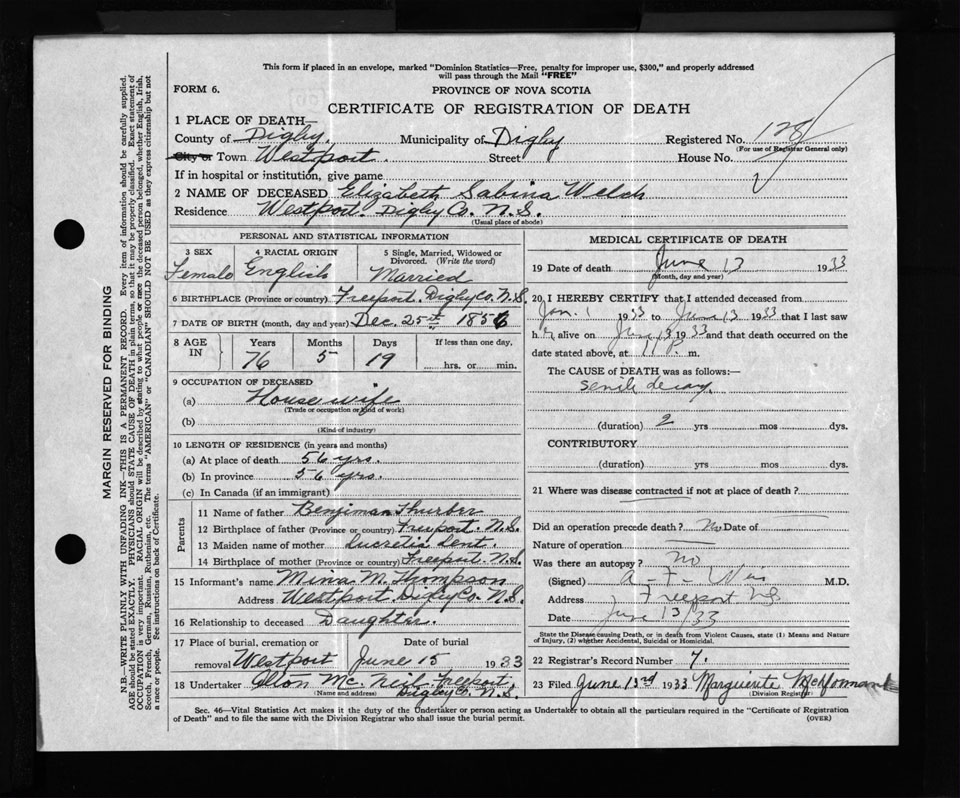 This form if placed in an envelope, marked "Dominion Statistics—Free, penalty for improper use, $300," and properly addressed
will pass through the Mail "FREE"
FORM 6.
PROVINCE OF NOVA SCOTIA
CERTIFICATE OF REGISTRATION OF DEATH
1 PLACE OF DEATH—
County of Digby. Municipality of Digby Registered No. 128
(For use of Registrar General only)
City or Town Westport. Street House No.
If in hospital or institution, give name
2 NAME OF DECEASED Elizabeth Sabina Welch
Residence Westport. Digby Co. N.S.
(Usual place of abode)
PERSONAL AND STATISTICAL INFORMATION
3 SEX Female
4 RACIAL ORIGIN English
5 Single, Married, Widowed or
Divorced. (Write the word)
Married
6 BIRTHPLACE (Province or country) Freeport. Digby Co. N.S.
7 DATE OF BIRTH (month, day and year) Dec. 25th 1856
8 AGE
IN
Years Months Days If less than one day,
76 5 19 hrs. or min.
9 OCCUPATION OF DECEASED
(a) House wife
(Trade or occupation or kind of work)
(b)
(Kind of industry)
10 LENGTH OF RESIDENCE (in years and months)
(a) At place of death 56 yrs.
(b) In province 56 yrs.
(c) In Canada (if an immigrant)
Parents
11 Name of father Benjiman Thurber
12 Birthplace of father (Province or country) Freeport. N.S.
13 Maiden name of mother Lucretia Dent.
14 Birthplace of mother (Province or country) Freeport. N.S.
15 Informant's name Mina M. Thompson
Address Westport Digby Co. N.S.
16 Relationship to deceased Daughter.
17 Place of burial, cremation or
removal Westport
Date of burial
June 15 1933
18 Undertaker Elton Mc. Neil. Freeport.
(Name and address) Digby Co. N.S.
MEDICAL CERTIFICATE OF DEATH
19 Date of death June 13 1933
(Month, day and year)
20 I HEREBY CERTIFY that I attended deceased from
Jan. 1 1933 to June 13 1933 that I last saw
her alive on June 13 1933 and that death occurred on the
date stated above, at 11 P. m.
The CAUSE of DEATH was as follows:—
senile decay
(duration) 2 yrs mos dys.
CONTRIBUTORY
(duration) yrs mos dys.
21 Where was disease contracted if not at place of death?
Did an operation precede death? No Date of
Nature of operation
Was there an autopsy? no
(Signed) A. F. M.D.
Address Freeport NS
Date June 13/33
State the Disease causing Death, or in death from Violent Causes, state (1) Means and Nature
of Injury, (2) whether Accidental, Suicidal or Homicidal.
22 Registrar's Record Number 7.
23 Filed June 13rd 1933 Marguerite
(Division Registrar)
Sec. 46—Vital Statistics Act makes it the duty of the Undertaker or person acting as Undertaker to obtain all the particulars required in the "Certificate of Registration
of Death" and to file the same with the Division Registrar who shall issue the burial permit.
(OVER)
MARGIN RESERVED FOR BINDING
N.B.—WRITE PLAINLY WITH UNFADING INK—THIS IS A PERMANENT RECORD. Every item of information should be carefully supplied.
AGE should be stated EXACTLY. PHYSICIANS should STATE CAUSE OF DEATH in plain terms, so that it may be properly classified. Exact statement of
OCCUPATION is very important. RACIAL ORIGIN will be described by stating to what people or race the deceased person belonged, whether English, Irish,
Scotch, French, German, Russian, Ruthenian, etc. The terms "AMERICAN" or "CANADIAN" SHOULD NOT BE USED as they express citizenship but not
a race or people. See instructions on back of Certificate.